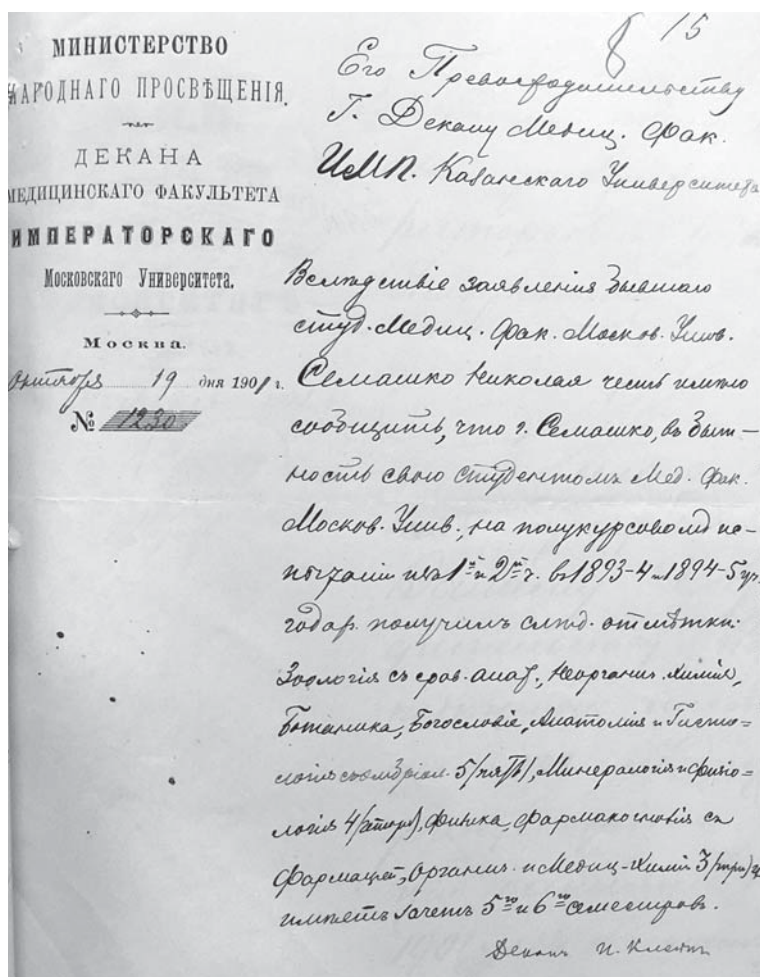 15
МИНИСТЕРСТВО
НАРОДНАГО ПРОСВѢЩЕНІЯ.
ДЕКАНА
МЕДИЦИНСКАГО ФАКУЛЬТЕТА
ИМПЕРАТОРСКАГО
Московскаго Университета.
Москва.
Октября 19 дня 1901 г.
№ 1230
Его Превосходительству
Г. Декану Медиц. Фак.
ИМП. Казанскаго Университета
Вслѣдствіе заявленія бывшаго
студ. Медиц. Фак. Москов. Унив.
Семашко Николая честь имѣю
сообщить, что г. Семашко, въ быт-
ность свою студентомъ Мед. Фак.
Москов. Унив., на полукурсовомъ ис-
пытаніи 1й и 2й ч. въ 1893-4 и 1894-5 уч.
годах. получилъ слѣд. отмѣтки:
Зоологія съ срав. анат., Неорганич. химія,
Ботаника, Богословіе, Анатомія и Гисто=
логія съ эмбріол. 5 (пять), Минералогія и физіо=
логія 4 (четыре), Физика, Фармакогнозія съ
Фармаціей, Органич. и Медиц. Химіи 3 (три) и
имѣетъ зачетъ 5го и 6го семестровъ.
Деканъ И. Клейнъ